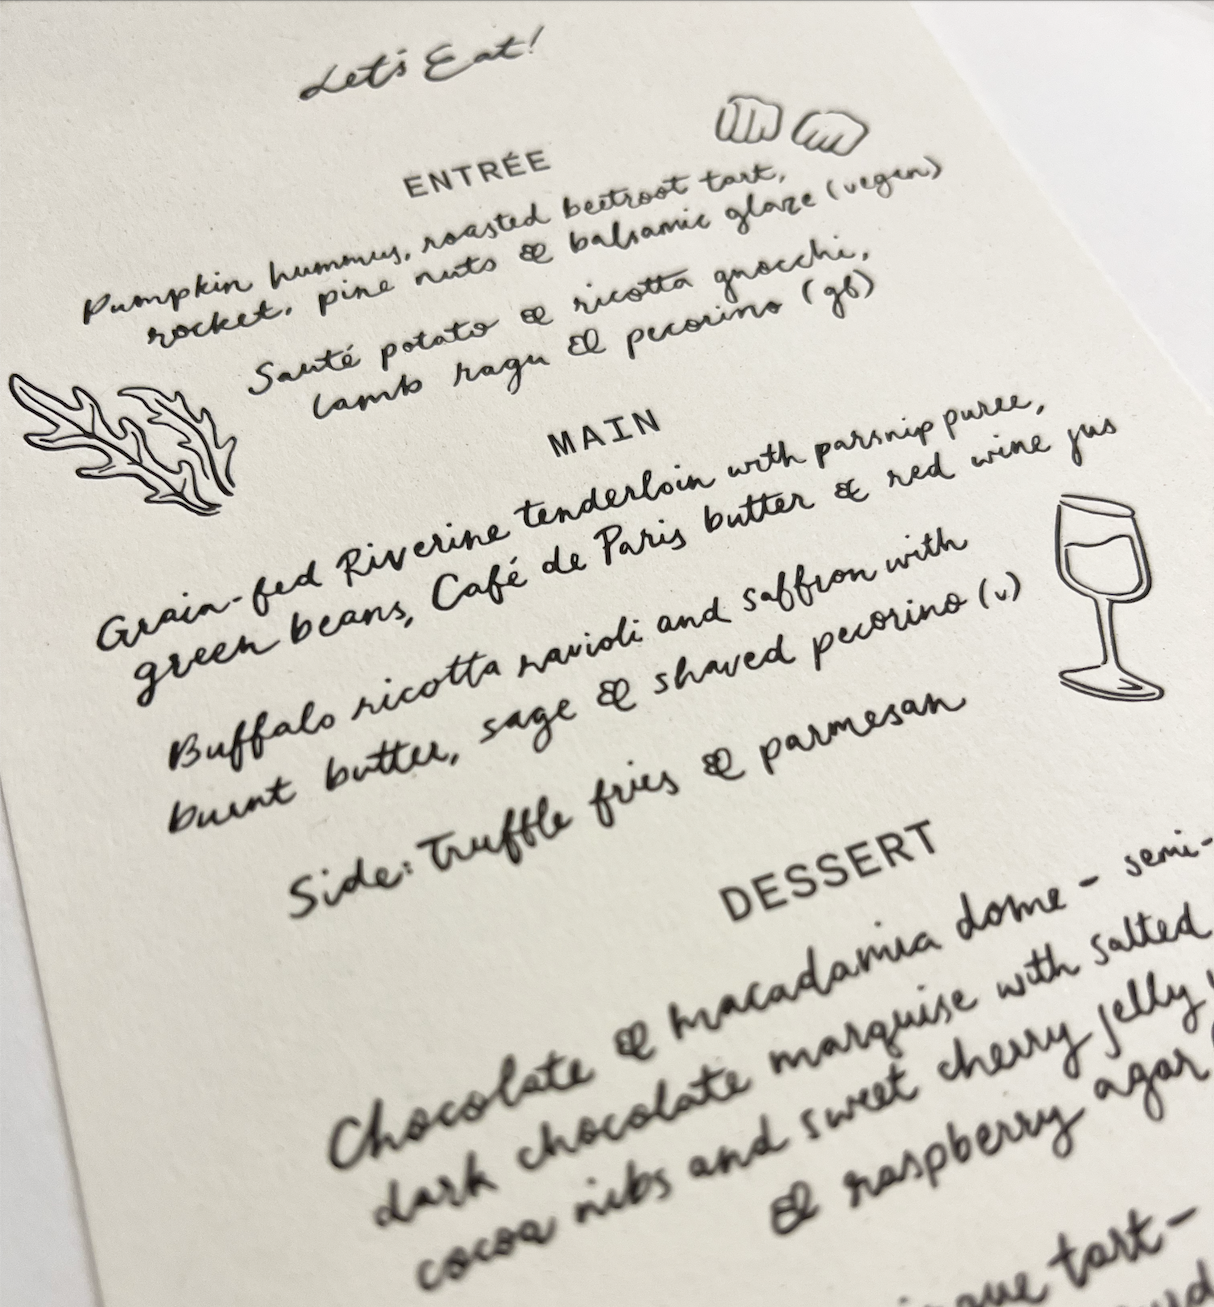 Let's Eat!
ENTRÉE
Pumpkin hummus, roasted beetroot tart,
rocket, pine nuts & balsamic glaze (vegan)
Sauté potato & ricotta gnocchi,
lamb ragu & pecorino (gf)
MAIN
Grain-fed Riverine tenderloin with parsnip puree,
green beans, Café de Paris butter & red wine jus
Buffalo ricotta ravioli and saffron with
burnt butter, sage & shaved pecorino (v)
Side: Truffle fries & parmesan
DESSERT
Chocolate & macadamia dome - semi-
dark chocolate marquise with salted
cocoa nibs and sweet cherry jelly
& raspberry agar
tart-